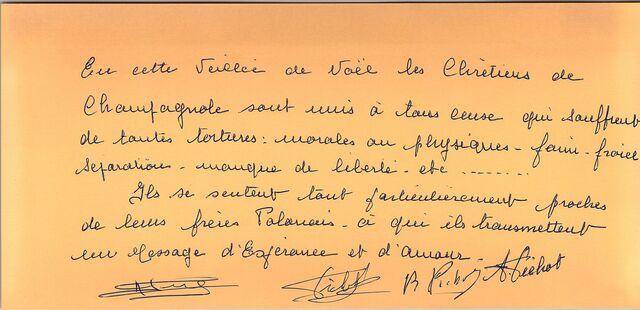 En cette Veillée de Noël les Chrétiens de
Champagnole sont unis à tous ceux qui souffrent
de toutes tortures : morales ou physiques - faim - froid
séparation - manque de liberté - etc ........
Ils se sentent tout particulièrement proches
de leurs frères Polonais - à qui ils transmettent
un Message d'Espérance et d'amour -
A. Péchot